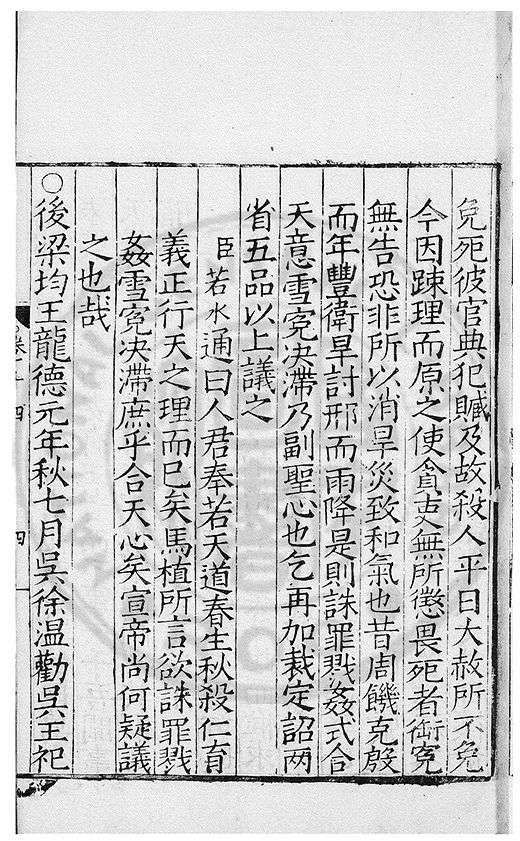 免死彼官典犯贓及故殺人平日大赦所不免
今因踈理而原之使貪吏無所懲畏死者銜寃
無告恐非所以消旱災致和氣也昔周饑克殷
而年豐衛旱討邢而雨降是則誅罪戮姦式合
天意雪寃決滯乃副聖心也乞再加裁定詔两
省五品以上議之
臣若水通曰人君奉若天道春生秋殺仁育
義正行天之理而已矣馬植所言欲誅罪戮
姦雪寃决滯庶乎合天心矣宣帝尚何疑議
之也哉
○後梁均王龍德元年秋七月吳徐溫勸吳王祀
四